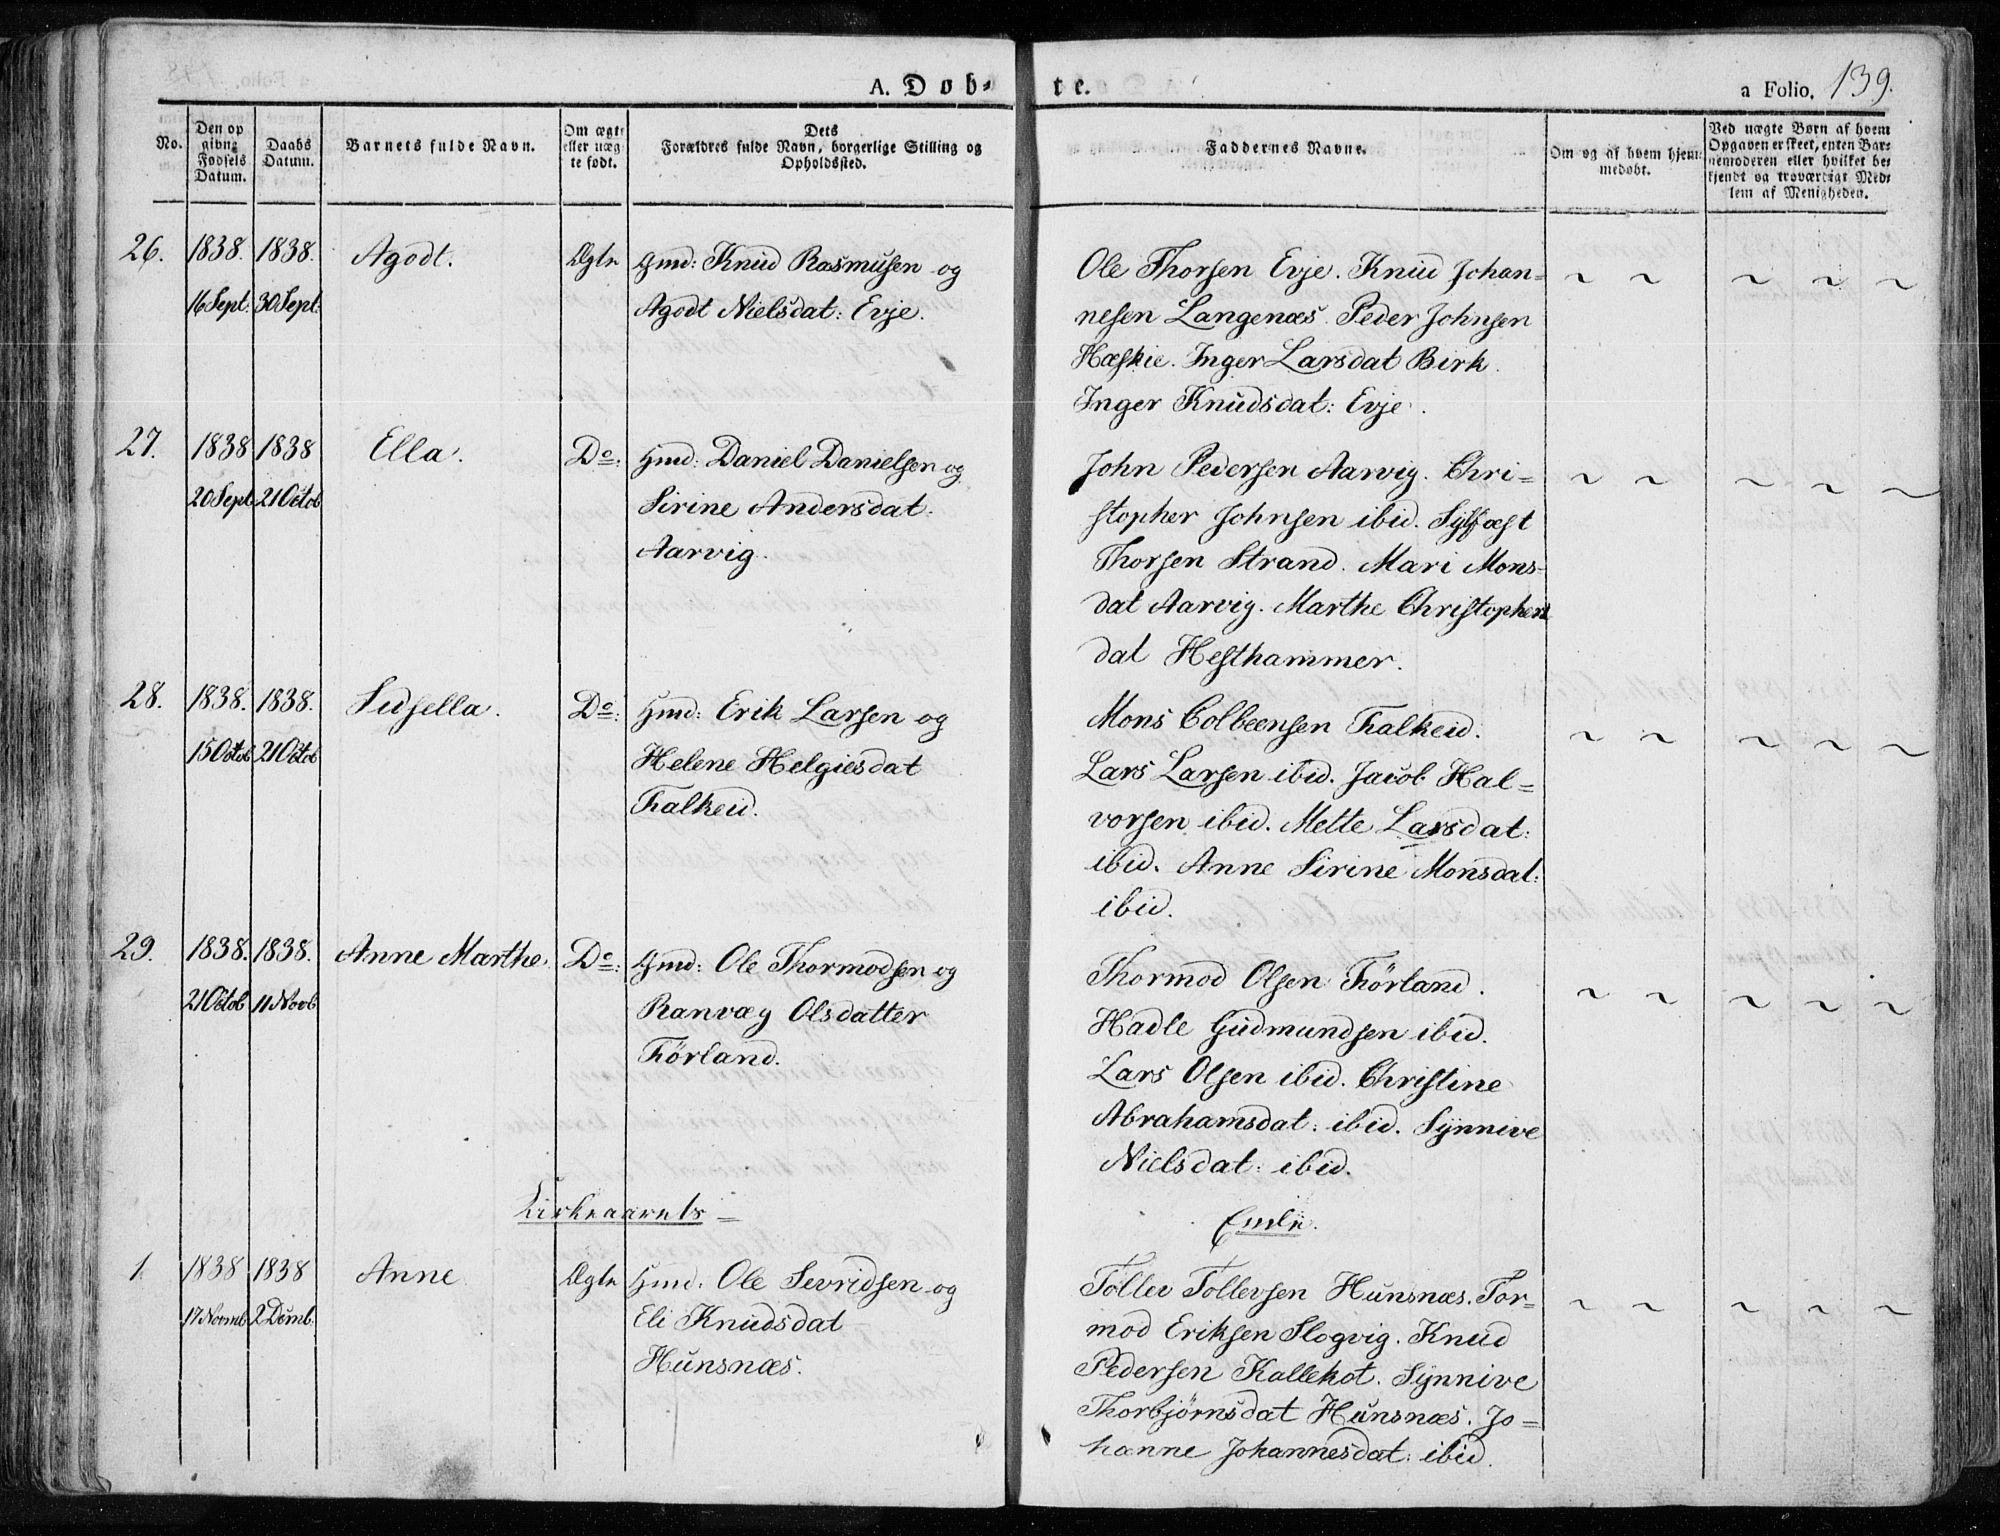 A. Døb-
te.
a Folio. 139.
No.
Den opgivne Fødsels Datum.
Daabs Datum.
Barnets fulde Navn.
Om ægte eller uægte født.
Dets Forældres fulde Navn, borgerlige Stilling og Opholdssted.
Faddernes Navne.
Om og af hvem hjemmedøbt.
Ved uægte Børn af hvem Opgaven er skeet, enten Barnemoderen eller hvilket bekjendt og troværdigt Medlem af Menigheden.
26. 1838. 1838. Agodt. Ægte Gmd: Knud Rasmusen og
16 Sept. 30 Sept: Agodt Nielsdat: Evje.
Ole Thorsen Evje. Knud Johan=
nesen Langenæs. Peder Johnsen
Hæskie. Inger Larsdat Birk.
Inger Knudsdat: Evje.
27. 1838 1838 Ella. Do: Gmd: Daniel Danielsen og
20 Sept 21 Octob Sirine Andersdat:
Aarvig.
John Pedersen Aarvig. Chri=
stopher Johnsen ibid. Sylfæst
Thorsen Strand. Mari Mons-
dat Aarvig. Marthe Christophers
dat Hesthammer.
28. 1838. 1838. Sidsella. Do: Gmd: Erik Larsen og
15 Octob 21 Octob Helene Helgiesdat
Falkeid.
Mons Colbeensen Falkeid.
Lars Larsen ibid. Jacob Hal=
vorsen ibid. Mette Larsdat:
ibid. Anne Sirine Monsdat:
ibid.
29. 1838. 1838. Anne Marthe. Do: Gmd: Ole Thormodsen og
21 Octob 11 Novb Ranvæg Olsdatter
Førland.
Thormod Olsen Førland.
Hadle Gudmundsen ibid.
Lars Olsen ibid. Christine
Abrahamsdat: ibid. Synnive
Nielsdat: ibid.
Kirkeaarets =
Ende.
1. 1838 1838 Anne Ægte Gmd: Ole Sevridsen og
17 Novmb 2 Decmb. Eli Knudsdat
Hunsnæs.
Tollev Tollevsen Hunsnæs. Tor=
mod Eriksen Slogvig. Knud
Pedersen Kallekot. Synnive
Thorbjørnsdat Hunsnæs. Jo=
hanne Johannesdat: ibid.